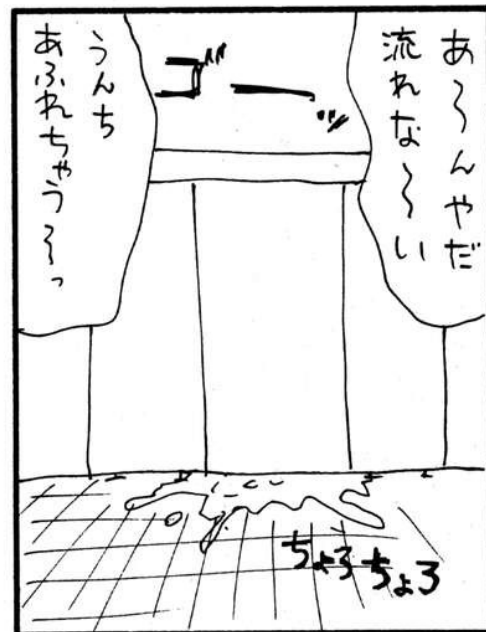 あ〜んやだ
流れな〜い
ゴーッ
うんち
あふれちゃう〜っ
ちょろちょろ